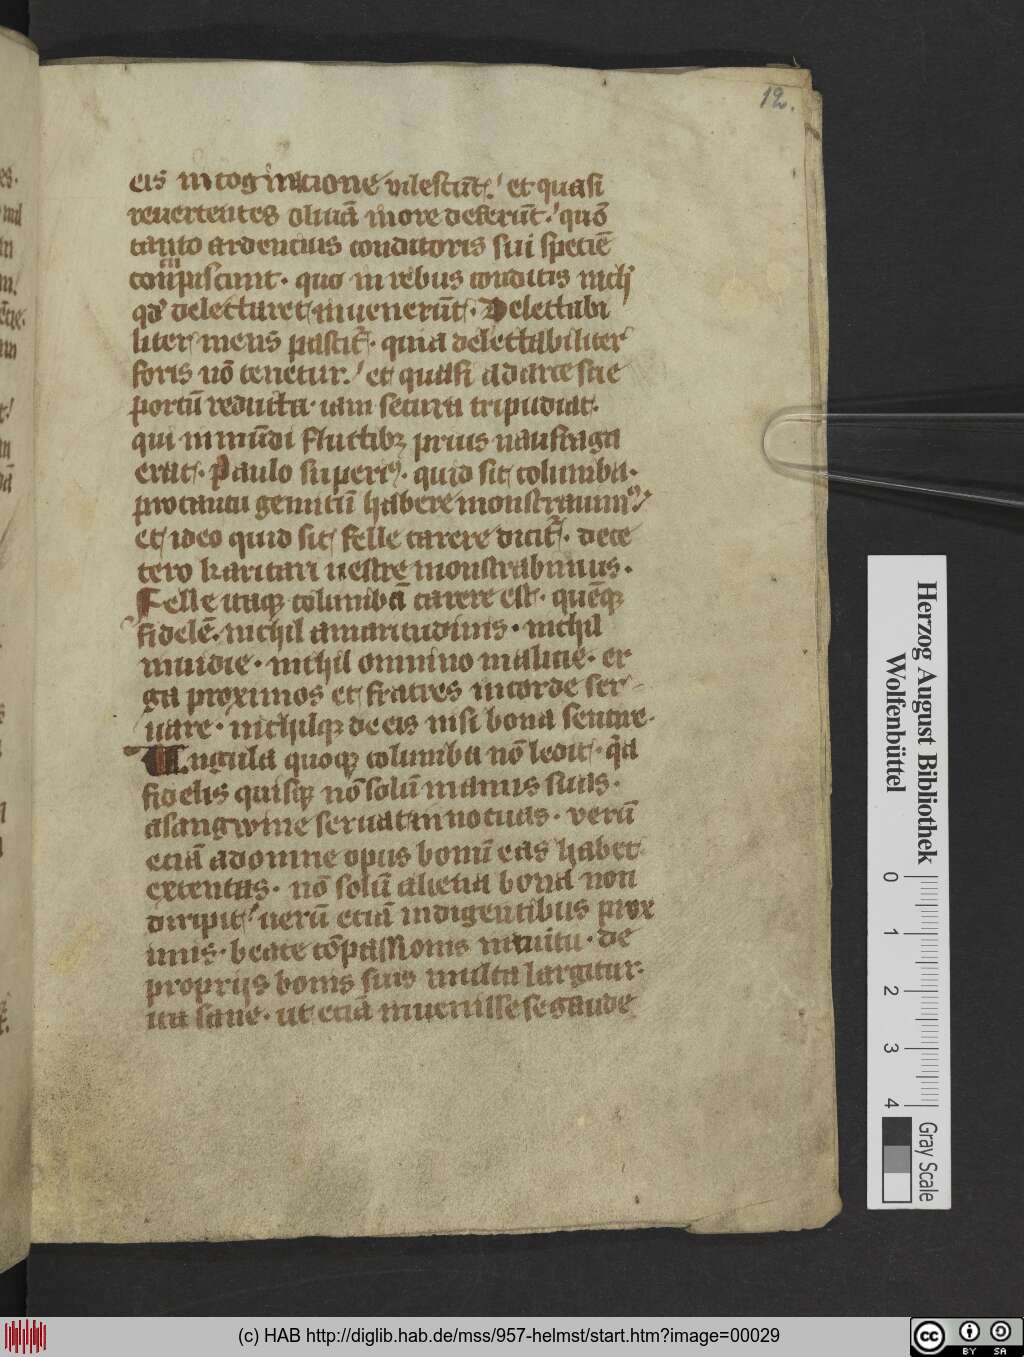 12.
eis in cogitacione vilescūt. et quasi
reuertentes oliuā in ore deferūt. quō
tanto ardencius conditoris sui speciē
concupiscunt. quo in rebus conditis nichil
qd delectaret inuenerūt. Delectabi
liter mens pascit̄. quia delectabiliter
foris nō tenetur. et quasi ad arce sue
portū reducta. iam secura tripudiat.
qui in mūdi fluctibꝫ prius naufraga
erat. Paulo superiꝰ. quid sit columba.
pro cantu gemitū habere monstrauimꝰ
et ideo quid sit felle carere dicit̄. de ce
tero karitati uestre monstrabimus.
Felle itaqꝫ columbā carere est. quēqꝫ
fidelē. nichil amaritudinis. nichil
inuidie. nichil omnino malicie. er
ga proximos et fratres in corde ser
uare. nichilqꝫ de eis nisi bona sentire.
Ungula quoqꝫ columba nō ledit. qa
fidelis quisqꝫ nō solū manus suas.
a sangwine seruat innocuas. verū
eciā ad omne opus bonū eas habet
extentas. nō solū aliena bona non
diripit. uerū eciā indigentibus prox
imis. beate cōpassionis intuitu. de
propriis bonis suis multa largitur.
ita sane. ut eciā inuenisse se gaude
Herzog August Bibliothek
Wolfenbüttel
0 1 2 3 4
Gray Scale
(c) HAB http://diglib.hab.de/mss/957-helmst/start.htm?image=00029
cc BY SA